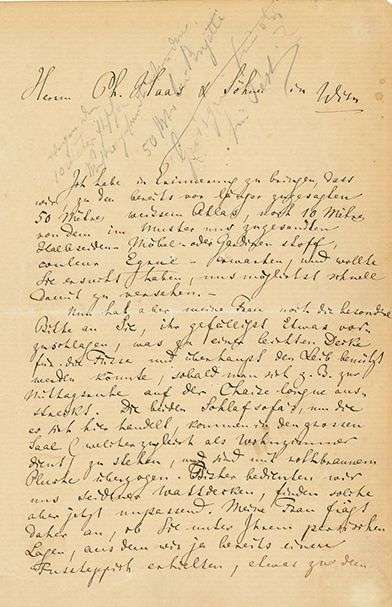 Herrn Ph. Haas & Söhne in Wien
50 Mtr
Ich habe in Erinnerung zu bringen, dass
wir, zu den bereits vor länger zugesagten
50 Mètres weissem Atlas, noch 10 Mètres
von dem im Muster uns zugesandten
Halbseiden-Möbel- oder Gardinen stoff,
couleur – erwarten, und wollte
Sie ersucht haben, uns möglichst schnell
damit zu versehen. –
Nun hat aber meine Frau noch die besondere
Bitte an Sie, ihr gefälligst Etwas vor-
zuschlagen, was zu einer leichten Decke
für die Füsse und überhaupt den Leib benützt
werden könnte, sobald man sich z. B. zur
Mittagsruhe auf der Chaise longue aus-
streckt. Die beiden Schlafsofas, um die
es sich hier handelt, kommen in den grossen
Saal (welcher zugleich als Wohnzimmer
dient) zu stehen, und sind mit rothbraunem
Plüsche überzogen. Bisher bedienten wir
uns seidener Wattdecken, finden solche
aber jetzt unpassend. Meine Frau frägt
daher an, ob Sie unter Ihrem persischen
Lager, aus dem wir ja bereits einen
Fussteppich erhielten, etwas zu dem